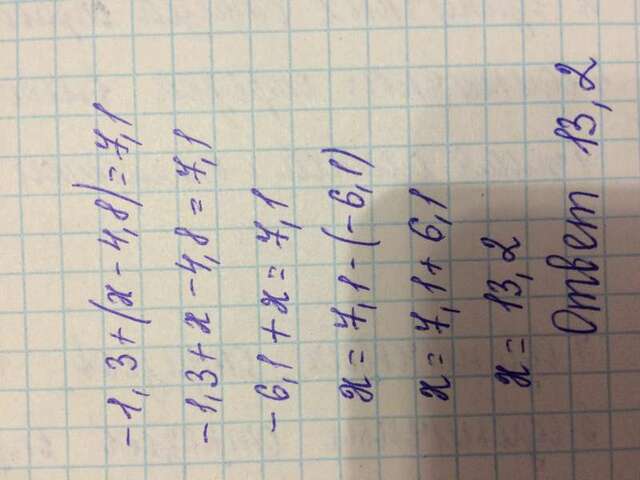 -1,3+(x-4,8)=7,1
-1,3+x-4,8=7,1
-6,1+x=7,1
x=7,1-(-6,1)
x=7,1+6,1
x=13,2
Ответ 13,2